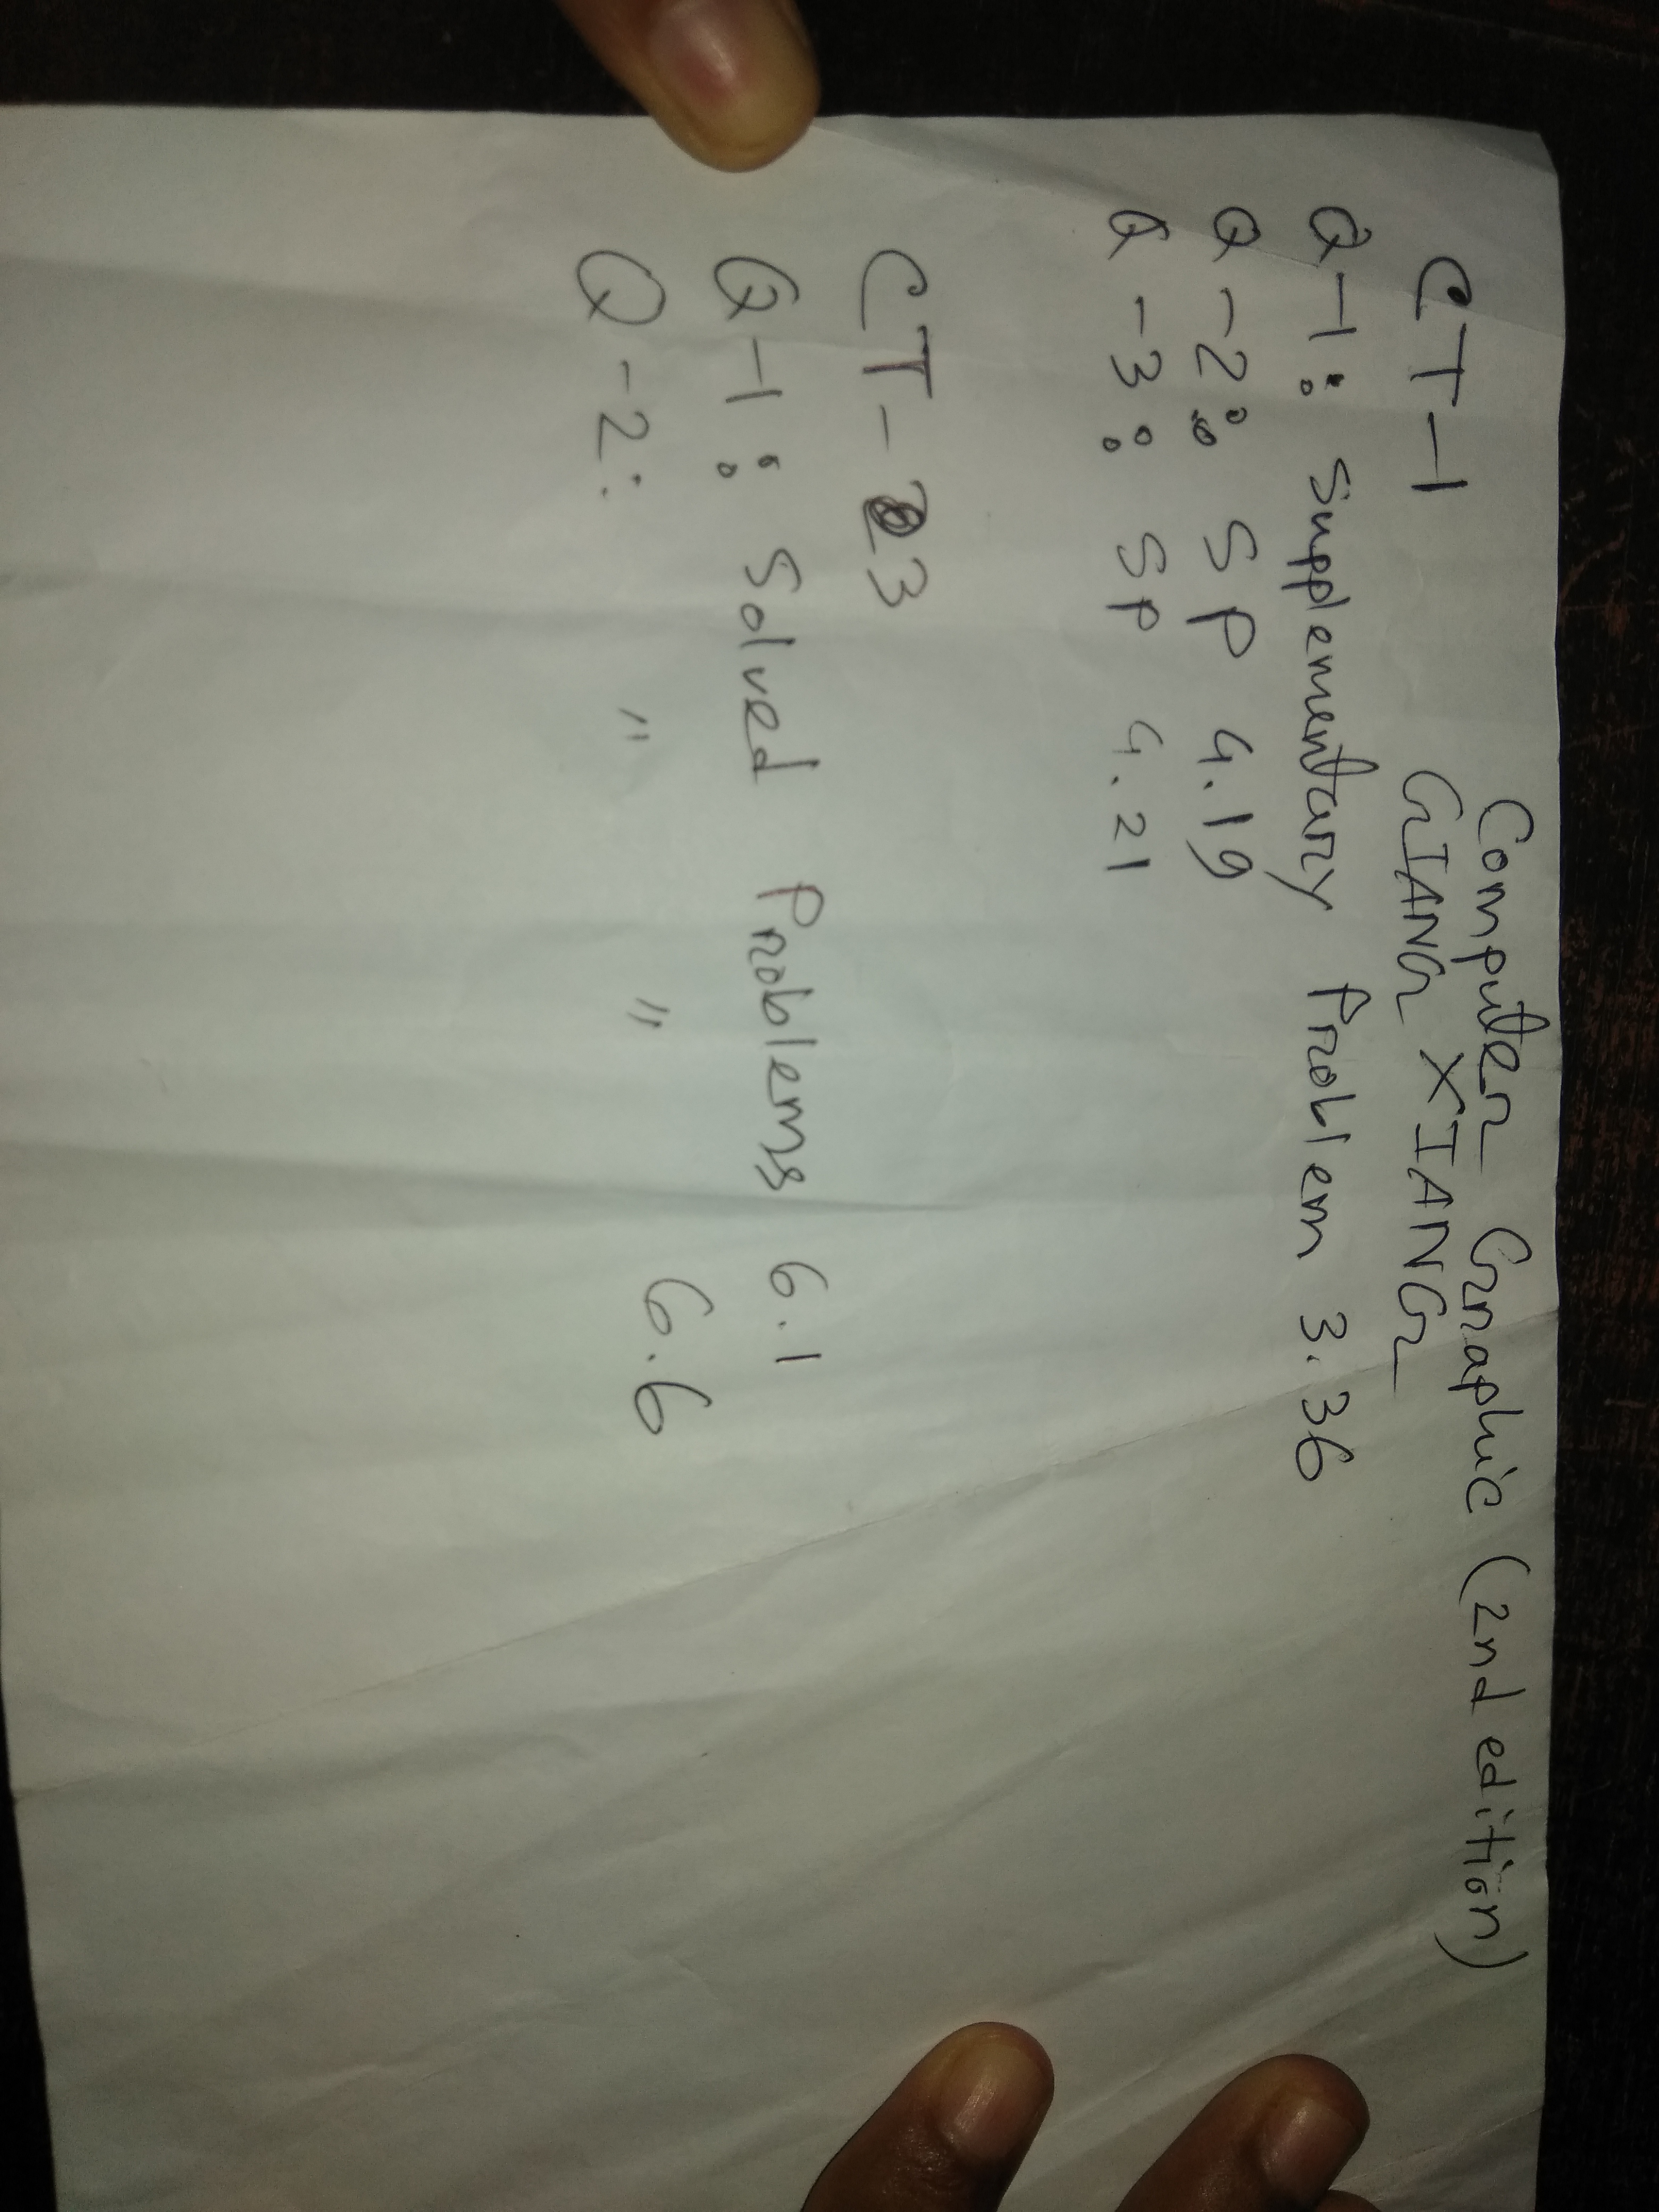 Computer Graphic (2nd edition)
GIANG XIANG
CT-1
Q-1: Supplementary Problem 3.36
Q-2: SP 4.19
Q-3: SP 4.21
CT-3
Q-1: Solved Problems 6.1
Q-2: " " 6.6